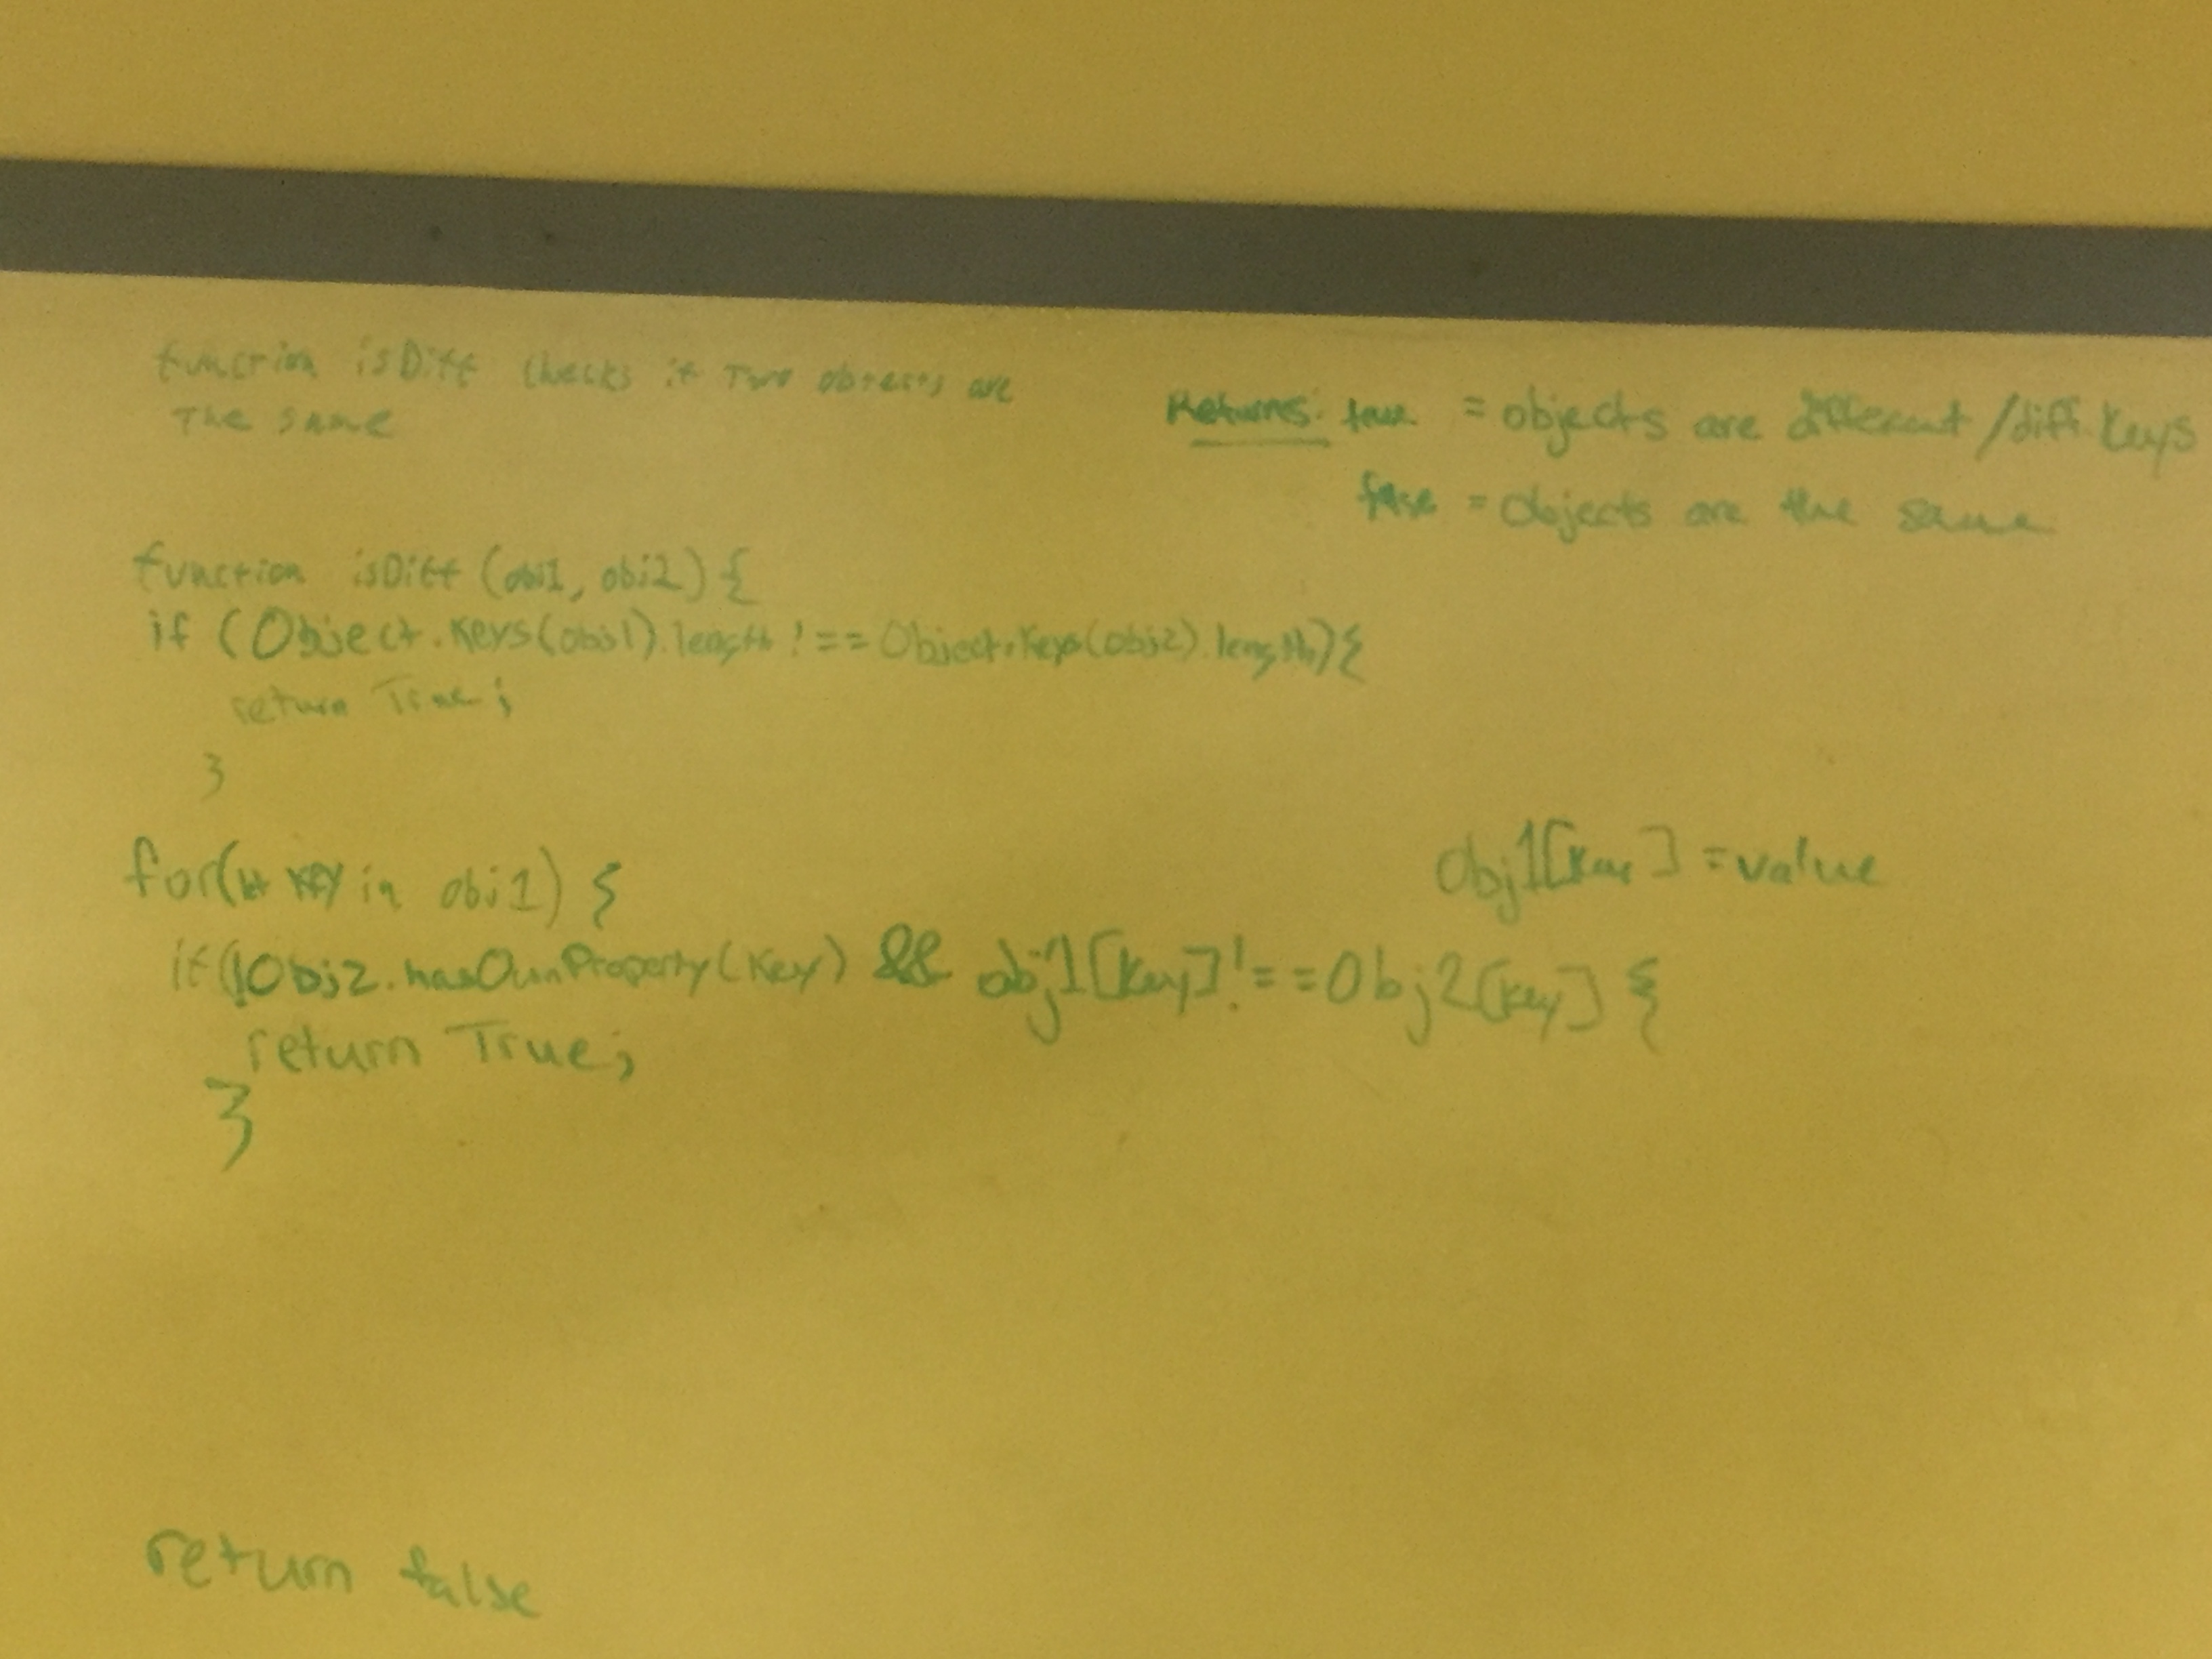 function isDiff checks if Two objects are
The same
Returns: true = objects are different / diff. keys
false = objects are the same
function isDiff (obj1, obj2) {
if (Object.keys(obj1).length !== Object.keys(obj2).length) {
return True;
}
for(let key in obj1) {
obj1[key] = value
if(!Obj2.hasOwnProperty(key) && obj1[key] !== Obj2[key] {
return True;
}
return false